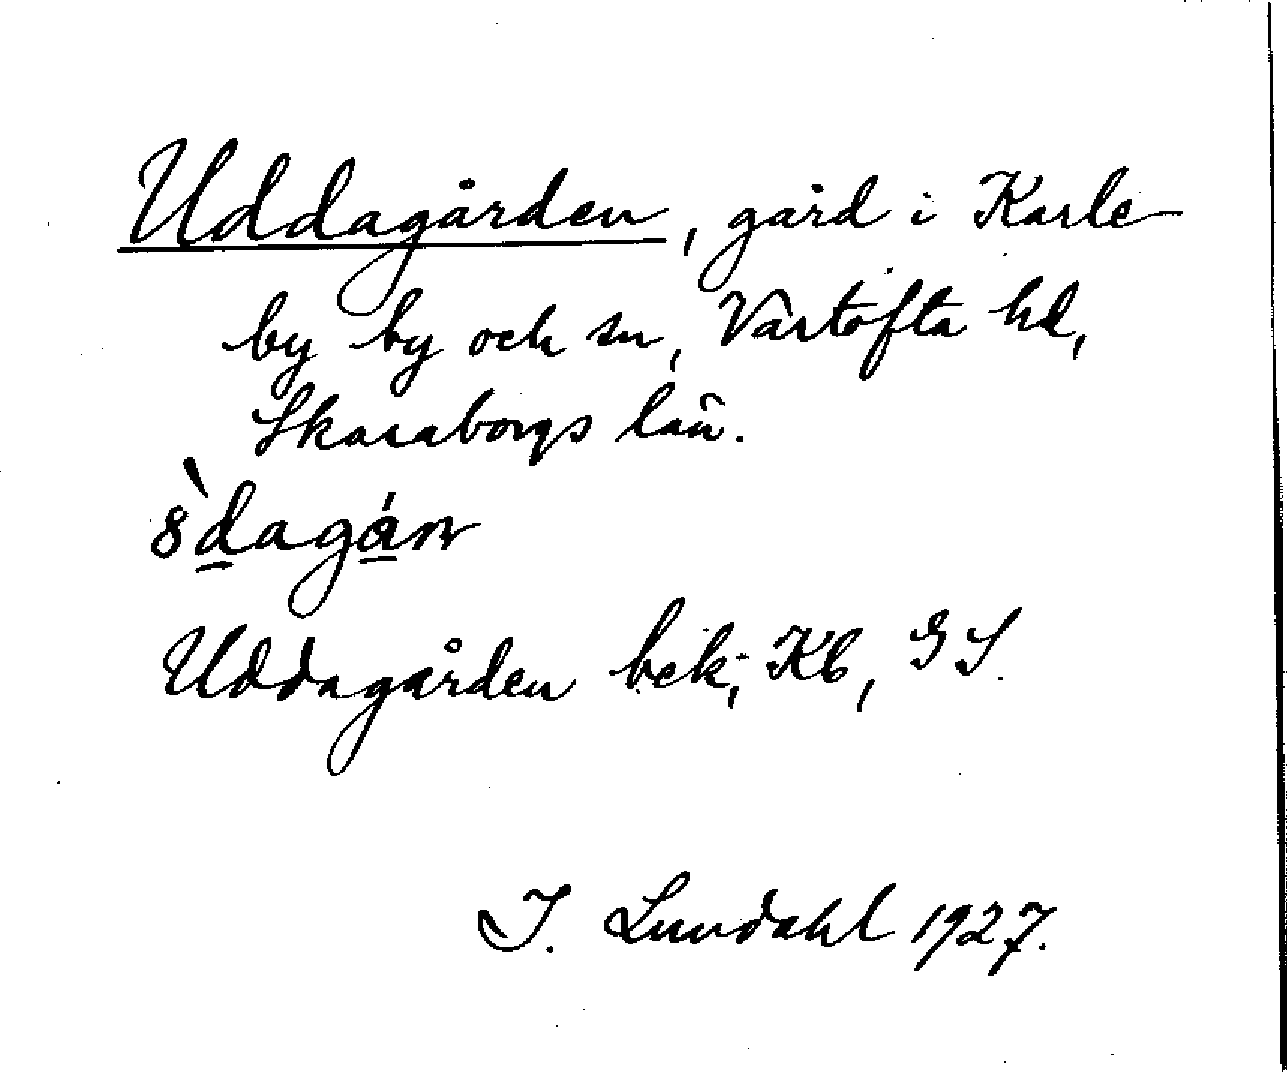 Uddagården, gård i Karle-
by by och sn, Vartofta hd,
Skaraborgs län.
8̀dagán
Uddagården bek., Kb, GS.
I. Lundahl 1927.